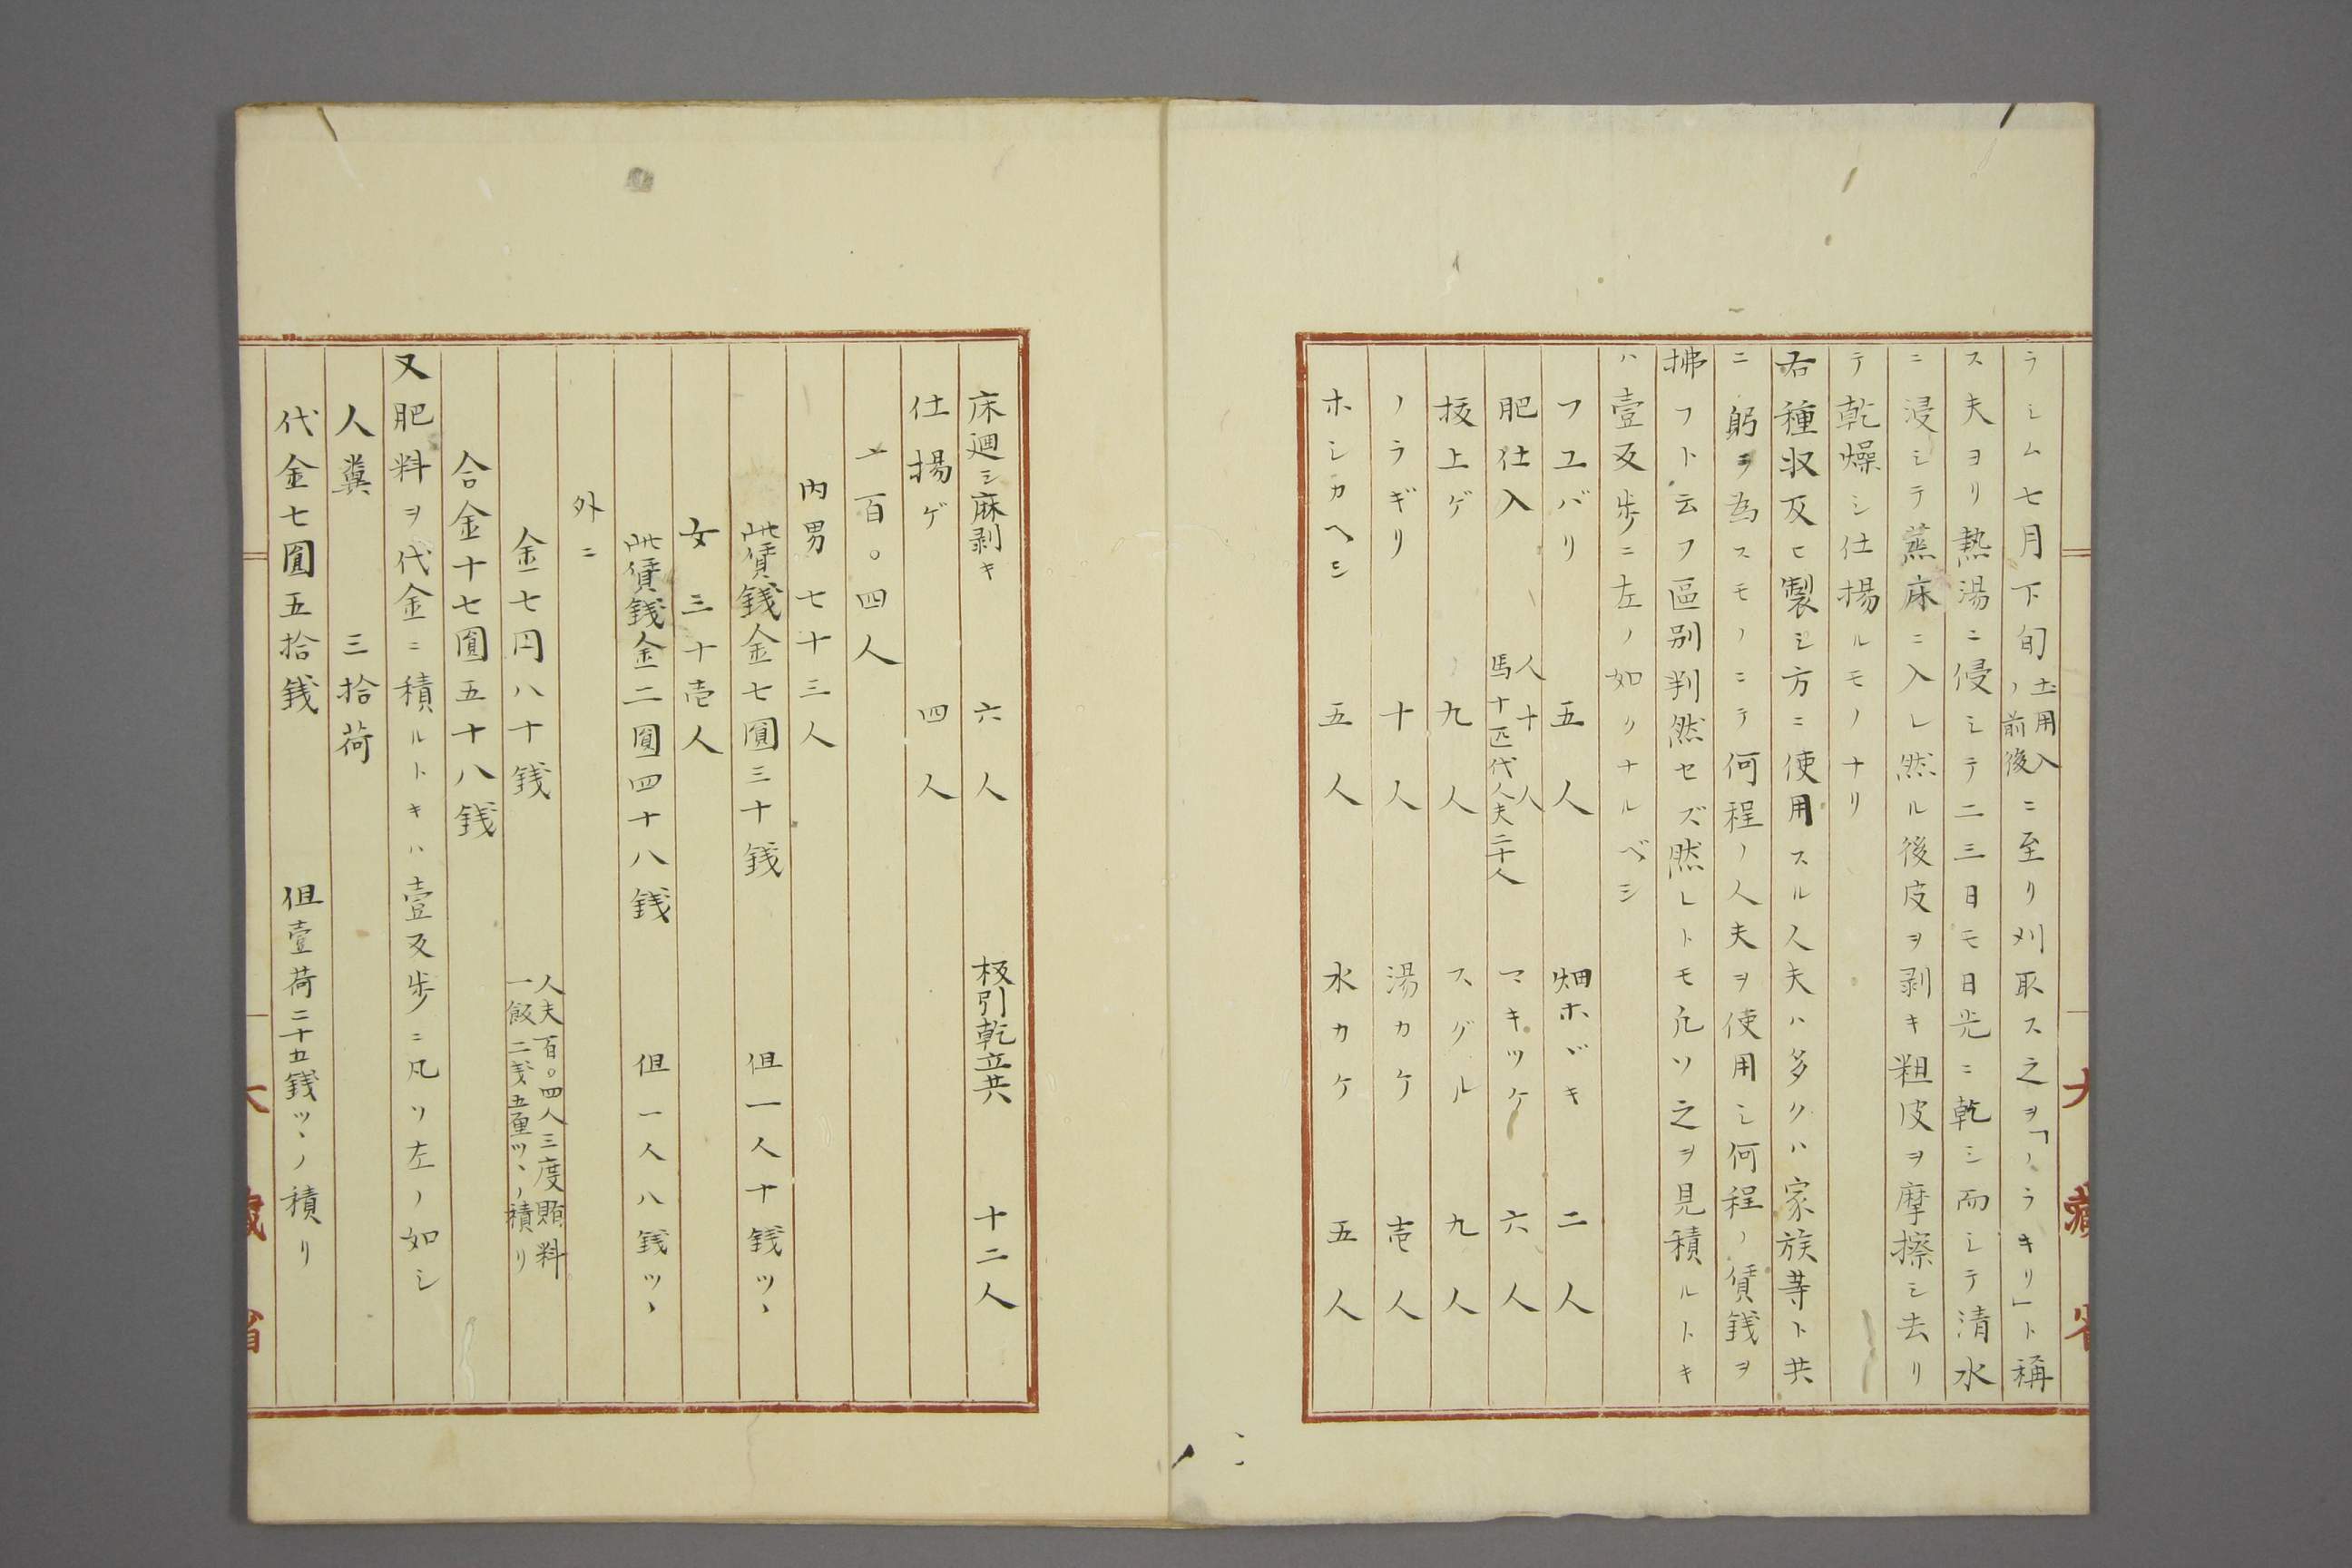 ラシム七月下旬土用入ノ前後ニ至リ刈取ス之ヲ「ノラキリ」ト稱
ス夫ヨリ熱湯ニ侵シテ二三日モ日光ニ乾シ而シテ清水
ニ浸シテ蒸床ニ入レ然ル後皮ヲ剥キ粗皮ヲ摩擦シ去リ
テ乾燥シ仕揚ルモノナリ
右種収及ヒ製シ方ニ使用スル人夫ハ多クハ家族等ト共
ニ躬ヲ為スモノニテ何程ノ人夫ヲ使用シ何程ノ賃銭ヲ
拂フト云フ區別判然セズ然レトモ凡ソ之ヲ見積ルトキ
ハ壹反歩ニ左ノ如クナルベシ
フユバリ 五人 畑ホヾキ 二人
肥仕入 人十人 馬十匹代人夫二十人 マキツケ 六人
抜上ゲ 九人 スグル 九人
ノラギリ 十人 湯カケ 壱人
ホシカヘシ 五人 水カケ 五人
大藏省
床廻シ麻剥キ 六人 板引乾立共 十二人
仕揚ゲ 四人
〆百〇四人
内男七十三人
此賃銭金七圓三十銭 但一人十銭ツヽ
女三十壱人
此賃銭金二圓四十八銭 但一人八銭ツヽ
外ニ
金七円八十銭 人夫百〇四人三度賄料 一飯二銭五厘ツヽノ積リ
合金十七圓五十八銭
又肥料ヲ代金ニ積ルトキハ壹反歩ニ凡ソ左ノ如シ
人糞 三拾荷
代金七圓五拾銭 但壹荷二十五銭ツヽノ積リ
大藏省